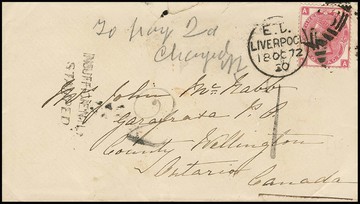 To pay 2d
Charged
E.L.
LIVERPOOL
18 OC 72
20
A
A
INSUFFICIENTLY
STAMPED
2
1
John McNabb
Garafraxa P.O.
County Wellington
Ontario
Canada